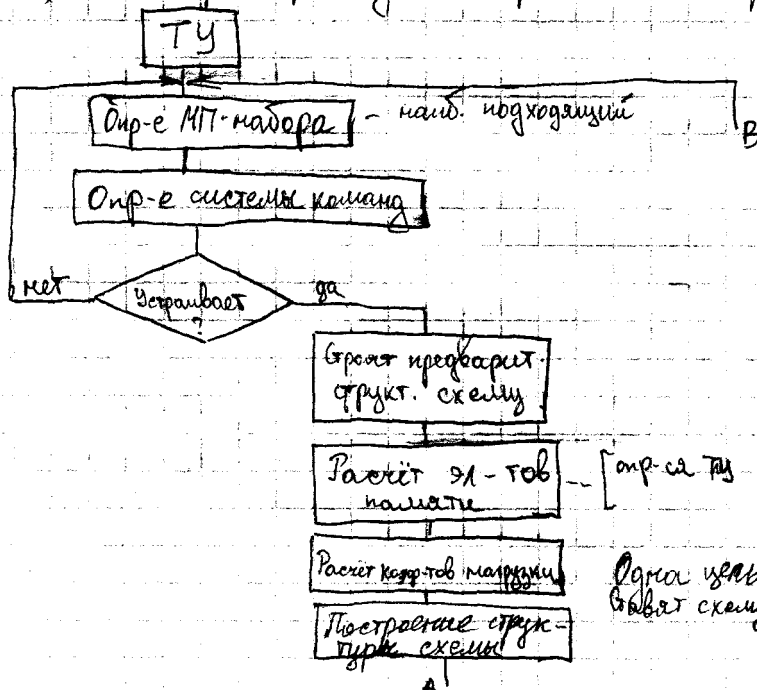 ТУ
Опр-е МП-набора – наиб. подходящий
В
Опр-е системы команд
нет
Устраивает
?
да
Строят предварит.
структ. схему
Расчёт эл-тов
памяти
опр-ся ТУ
Расчёт коэф-тов нагрузки
Одна цепь
Ставят схему
Построение струк-
туры схемы
А